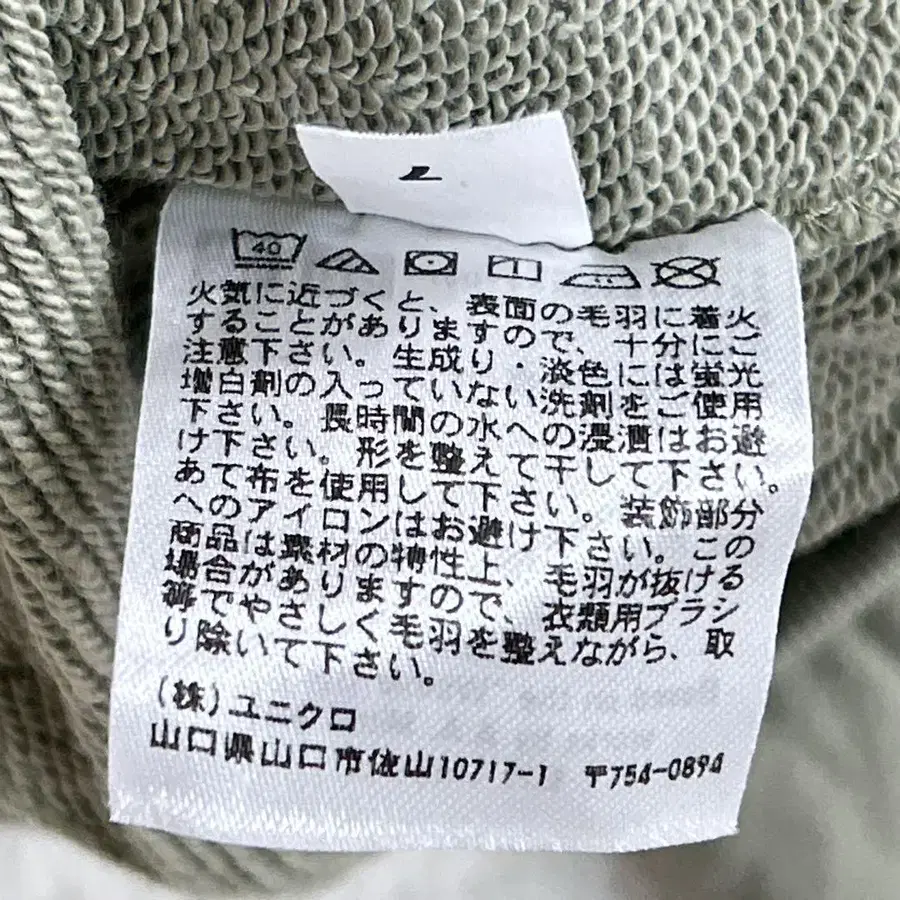 40
火気に近づくと、表面の毛羽に着火
することがありますので、十分にご
注意下さい。生成り・淡色には蛍光
増白剤の入っていない洗剤をご使用
下さい。長時間の水への浸漬はお避
け下さい。形を整えて干して下さい。
あて布を使用して下さい。装飾部分
へのアイロンはお避け下さい。この
商品は素材の特性上、毛羽が抜ける
場合がありますので、衣類用ブラシ
等でやさしく毛羽を整えながら、取
り除いて下さい。
(株)ユニクロ
山口県山口市佐山10717-1 〒754-0894